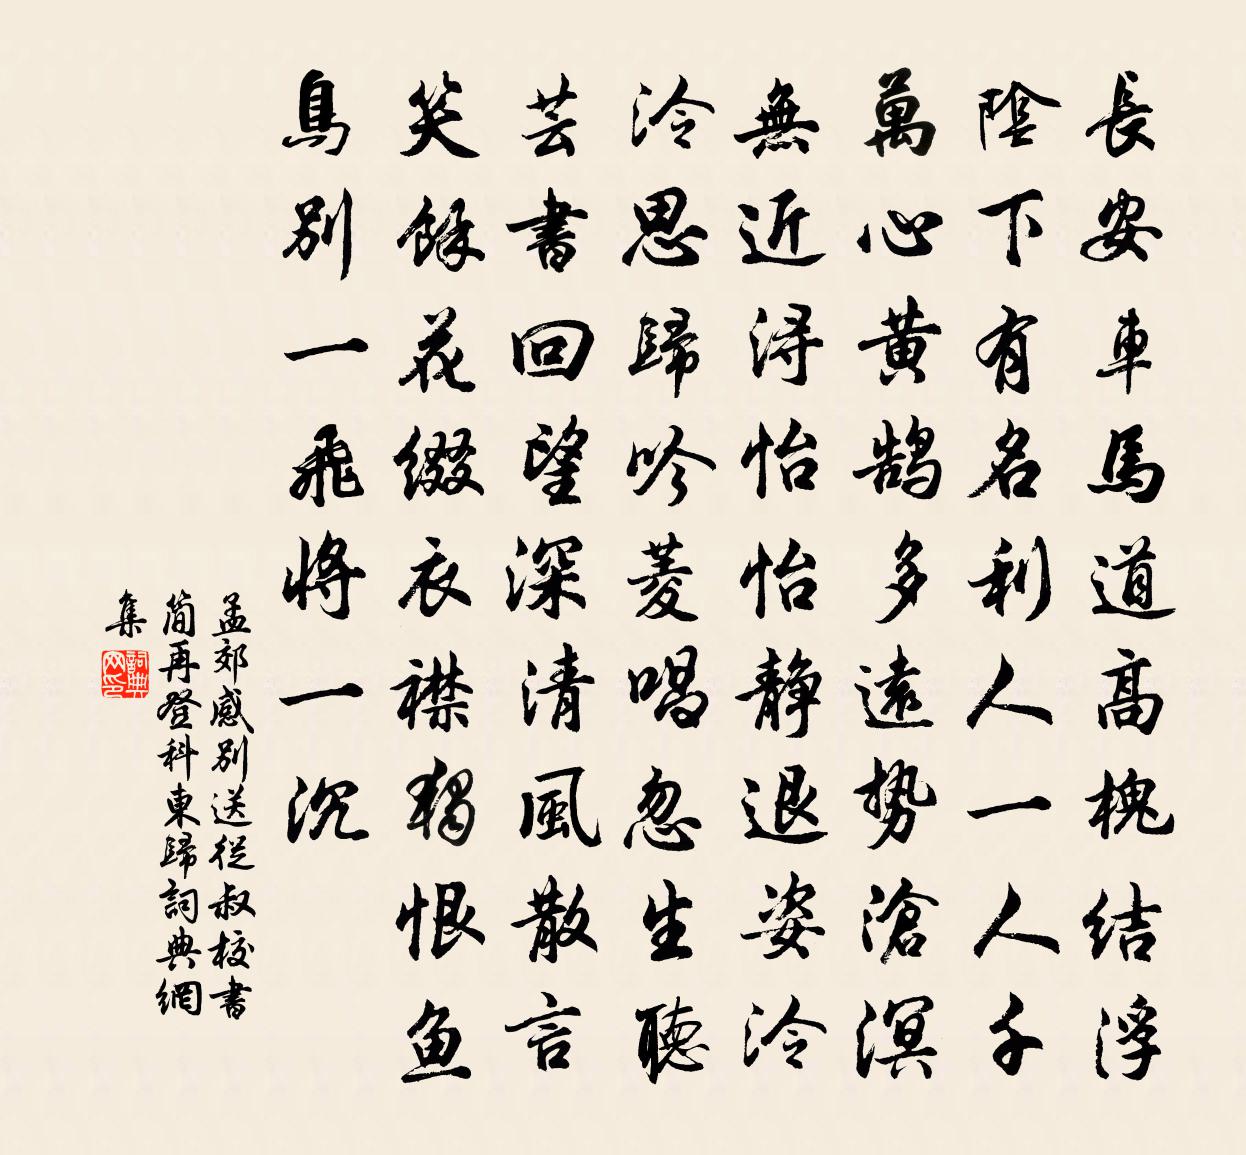 長安車馬道高槐結浮
陰下有名利人一人千
萬心黃鵠多遠势滄溟
無近浔怡怡静退姿泠
泠思歸吟菱唱忽生聽
芸書回望深清風散言
笑餘花綴衣襟獨恨鱼
鳥別一飛將一沉
孟郊感別送從叔校書
簡再登科東歸詞典網
集
詞典网印